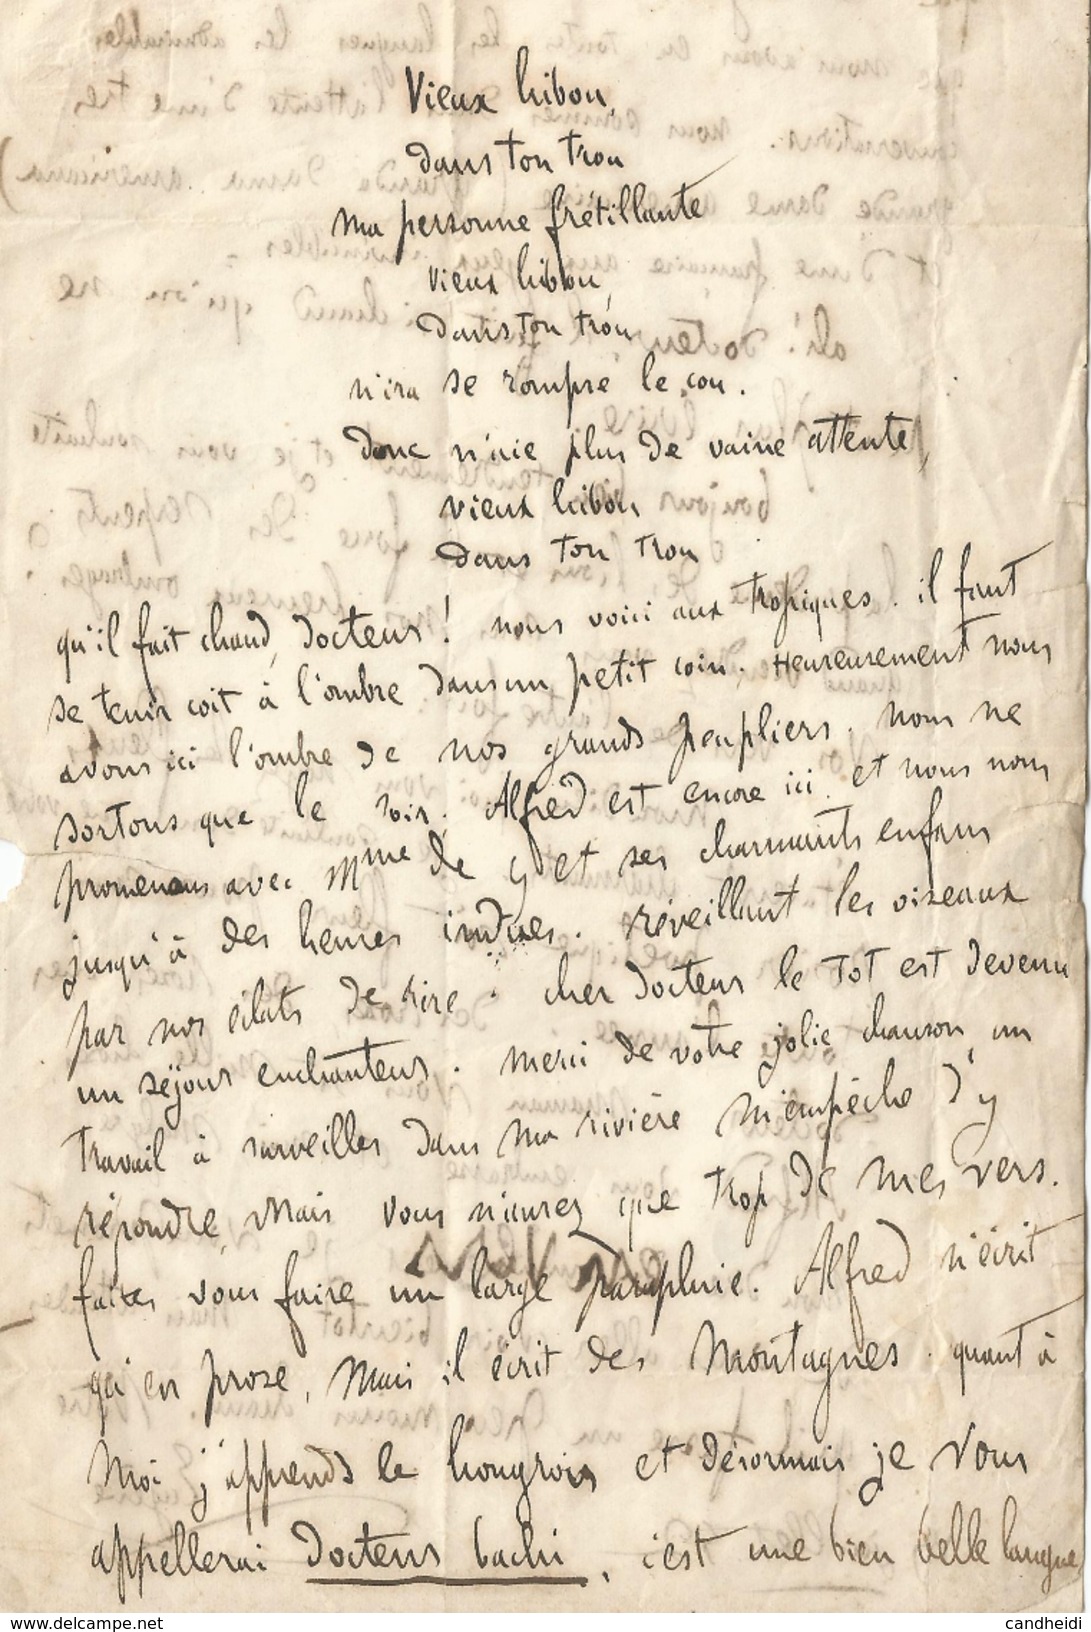 Vieux hibou,
dans ton trou
ma personne frétillante
vieux hibou,
dans ton trou
n'ira se rompre le cou.
donc n'aie plus de vaine attente,
vieux hibou,
dans ton trou
qu'il fait chaud, docteur ! nous voici aux tropiques. il faut
se tenir coit à l'ombre dans un petit coin. Heureusement nous
avons ici l'ombre de nos grands peupliers. nous ne
sortons que le soir. Alfred est encore ici et nous nous
promenons avec Mme de et ses charmants enfans
jusqu'à des heures indues. réveillant les oiseaux
par nos éclats de rire. cher docteur le Tot est devenu
un séjour enchanteur. merci de votre jolie chanson, un
travail à surveiller dans ma rivière m'empêche d'y
répondre, Mais vous n'aurez que trop de mes vers.
faites vous faire un large parapluie. Alfred n'écrit
qu'en prose, mais il écrit des montagnes. quant à
moi j'apprends le hongrois et désormais je vous
appellerai docteur bachi, c'est une bien belle langue
www.delcampe.net
candheidi